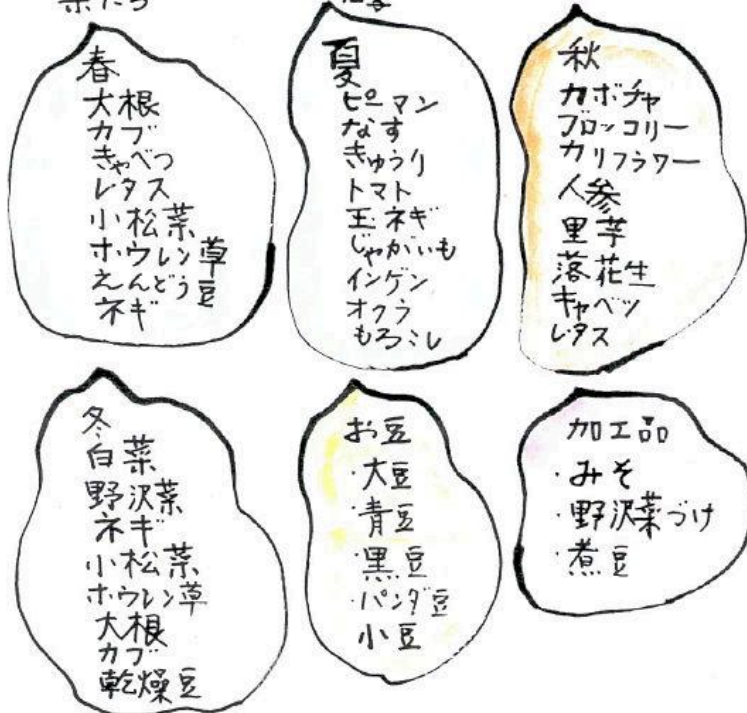 春
大根
カブ
きゃべつ
レタス
小松菜
ホウレン草
えんどう豆
ネギ
夏
ピーマン
なす
きゅうり
トマト
玉ネギ
じゃがいも
インゲン
オクラ
もろこし
秋
カボチャ
ブロッコリー
カリフラワー
人参
里芋
落花生
キャベツ
レタス
冬
白菜
野沢菜
ネギ
小松菜
ホウレン草
大根
カブ
乾燥豆
お豆
・大豆
・青豆
・黒豆
・パンダ豆
小豆
加工品
・みそ
・野沢菜づけ
・煮豆